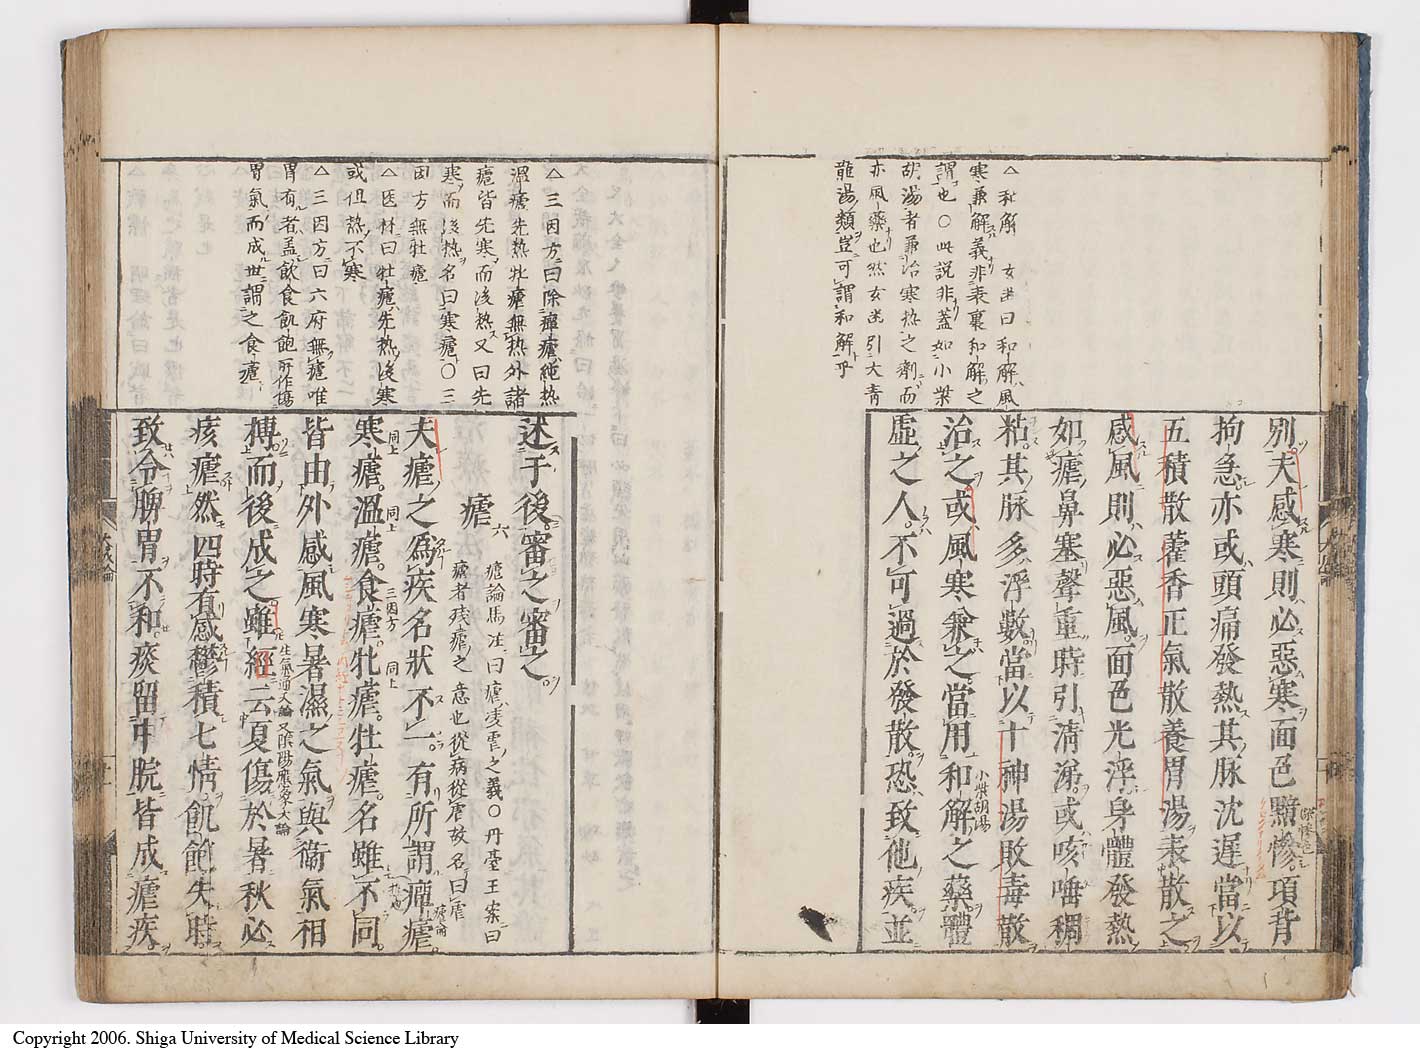 △和解 玄冶曰和解風
寒兼解義非表裏和解之
謂也○此説非蓋如小柴
胡湯者兼治寒熱之劑而
亦風藥也然玄冶引大青
龍湯類豈可謂和解乎
別夫感寒則必惡寒面色黲慘項背
拘急亦或頭痛發熱其脉沈遲當以
五積散藿香正氣散養胃湯表散之
感風則必惡風面色光浮身體發熱
如瘧鼻塞聲重時引清涕或咳唾稠
粘其脉多浮數當以十神湯敗毒散
治之或風寒兼之當用和解之藥體
小柴胡湯
虚之人不可過於發散恐致他疾並
△三因方曰除癉瘧純熱
溫瘧先熱牡瘧無熱外諸
瘧皆先寒而後熱又曰先
寒而後熱名曰寒瘧○三
因方無牡瘧
△医林曰牡瘧先熱後寒
或但熱不寒
△三因方曰六府無瘧唯
胃有者蓋飲食飢飽所作傷
胃氣而成世謂之食瘧
述于後審之審之
瘧 六
瘧論馬注曰瘧凌虐之義○丹臺玉案曰
瘧者殘瘧之意也從病從虐故名曰虐
夫瘧之爲疾名狀不一有所謂癉瘧
瘧論
寒瘧溫瘧食瘧牝瘧牡瘧名雖不同
同上 同上 三因方 同上
皆由外感風寒暑濕之氣與衞氣相
搏而後成之雖經云夏傷於暑秋必
生氣通天論 又陰陽應象大論
痎瘧然四時有感鬱積七情飢飽失時
致令脾胃不和痰留中脘皆成瘧疾
Copyright 2006. Shiga University of Medical Science Library